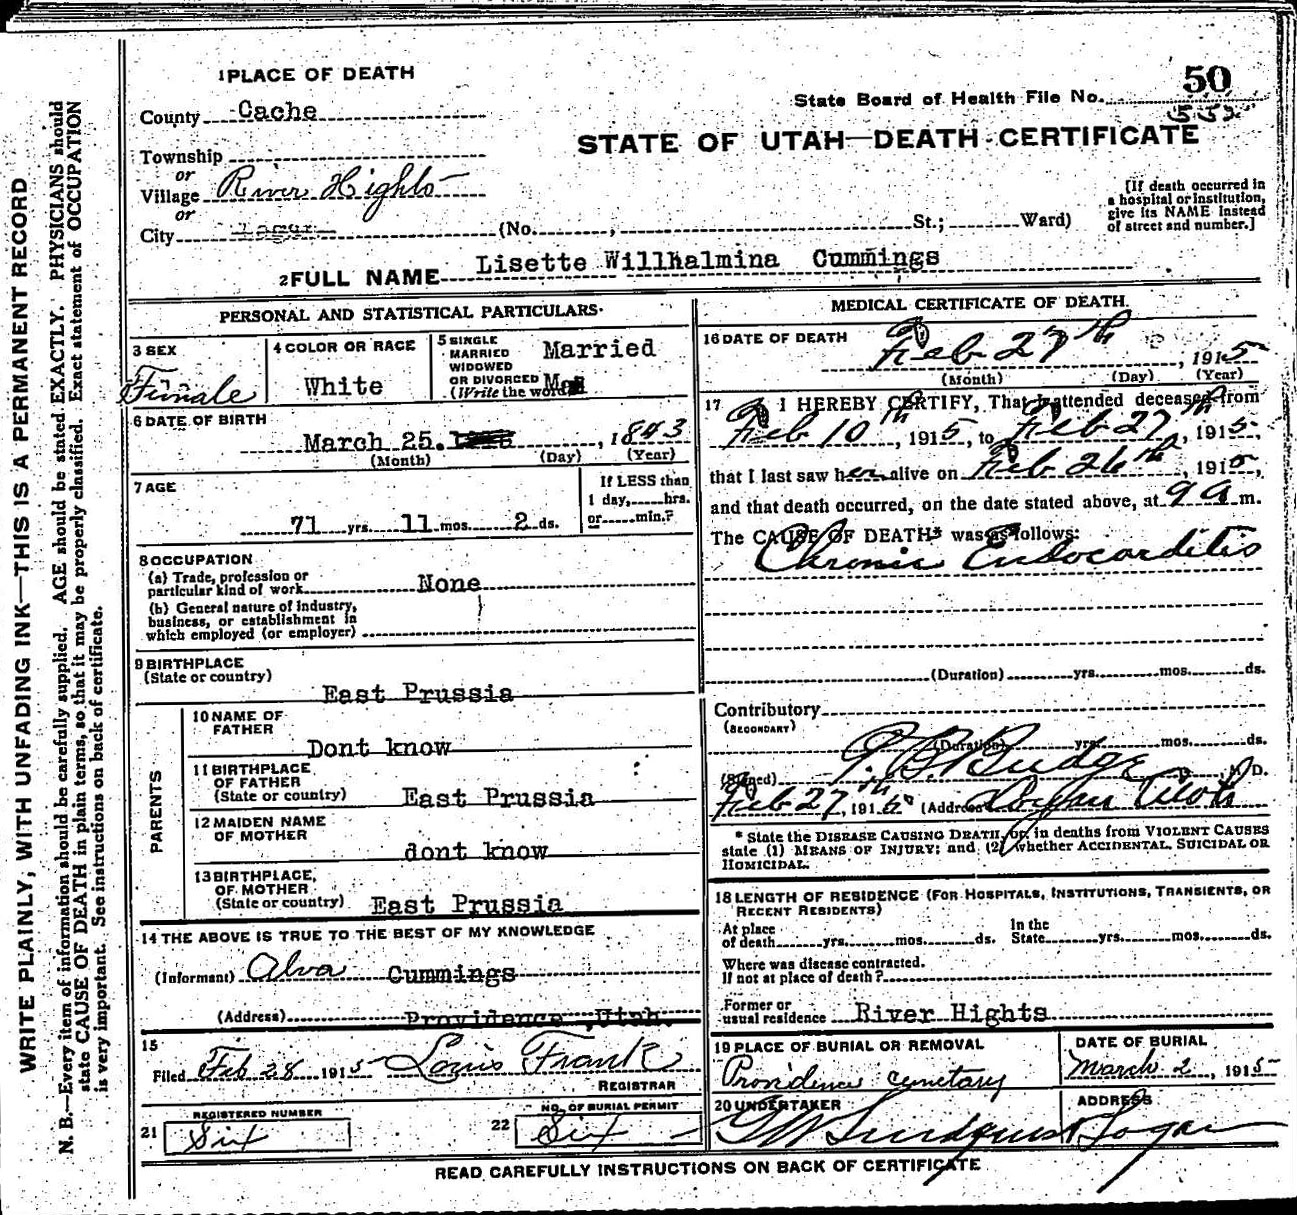 WRITE PLAINLY, WITH UNFADING INK—THIS IS A PERMANENT RECORD
N. B.—Every item of information should be carefully supplied. AGE should be stated EXACTLY. PHYSICIANS should
state CAUSE OF DEATH in plain terms, so that it may be properly classified. Exact statement of OCCUPATION
is very important. See instructions on back of certificate.
1 PLACE OF DEATH
County Cache
Township
or
Village River Highto
or
City Logan
50
State Board of Health File No.
552
STATE OF UTAH—DEATH CERTIFICATE
(No. , St.; Ward)
[If death occurred in
a hospital or institution,
give its NAME instead
of street and number.]
2 FULL NAME Lisette Willhalmina Cummings
PERSONAL AND STATISTICAL PARTICULARS
3 SEX
Female
4 COLOR OR RACE
White
5 SINGLE
MARRIED
WIDOWED
OR DIVORCED
(Write the word)
Married
6 DATE OF BIRTH
March 25. , 1843
(Month) (Day) (Year)
7 AGE
71 yrs. 11 mos. 2 ds.
If LESS than
1 day, hrs.
or min.?
8 OCCUPATION
(a) Trade, profession or
particular kind of work None
(b) General nature of industry,
business, or establishment in
which employed (or employer)
9 BIRTHPLACE
(State or country)
East Prussia
PARENTS
10 NAME OF
FATHER
Dont know
11 BIRTHPLACE
OF FATHER
(State or country) East Prussia
12 MAIDEN NAME
OF MOTHER
dont know
13 BIRTHPLACE,
OF MOTHER
(State or country) East Prussia
14 THE ABOVE IS TRUE TO THE BEST OF MY KNOWLEDGE
(Informant) Alva Cummings
(Address) Providence ,Utah.
15
Filed Feb 28 1915 Louis Frank
REGISTRAR
21 REGISTERED NUMBER
Six
22 NO. OF BURIAL PERMIT
Six
MEDICAL CERTIFICATE OF DEATH.
16 DATE OF DEATH Feb 27th , 1915
(Month) (Day) (Year)
17 I HEREBY CERTIFY, That I attended deceased from
Feb 10th , 1915, to Feb 27th , 1915,
that I last saw her alive on Feb 26th , 1915,
and that death occurred, on the date stated above, at 9 a m.
The CAUSE OF DEATH* was as follows:
Chronic Endocarditis
(Duration) yrs. mos. ds.
Contributory
(SECONDARY)
(Duration) yrs. mos. ds.
(Signed) Budge M. D.
Feb 27th , 1915 (Address) Logan Utah
* State the DISEASE CAUSING DEATH, or, in deaths from VIOLENT CAUSES
state (1) MEANS OF INJURY; and (2) whether ACCIDENTAL, SUICIDAL OR
HOMICIDAL.
18 LENGTH OF RESIDENCE (FOR HOSPITALS, INSTITUTIONS, TRANSIENTS, OR
RECENT RESIDENTS)
At place
of death yrs. mos. ds.
In the
State yrs. mos. ds.
Where was disease contracted.
If not at place of death?
Former or
usual residence River Hights
19 PLACE OF BURIAL OR REMOVAL
Providence cemetary
DATE OF BURIAL
March 2 , 1915
20 UNDERTAKER
Lindquist
ADDRESS
Logan
READ CAREFULLY INSTRUCTIONS ON BACK OF CERTIFICATE